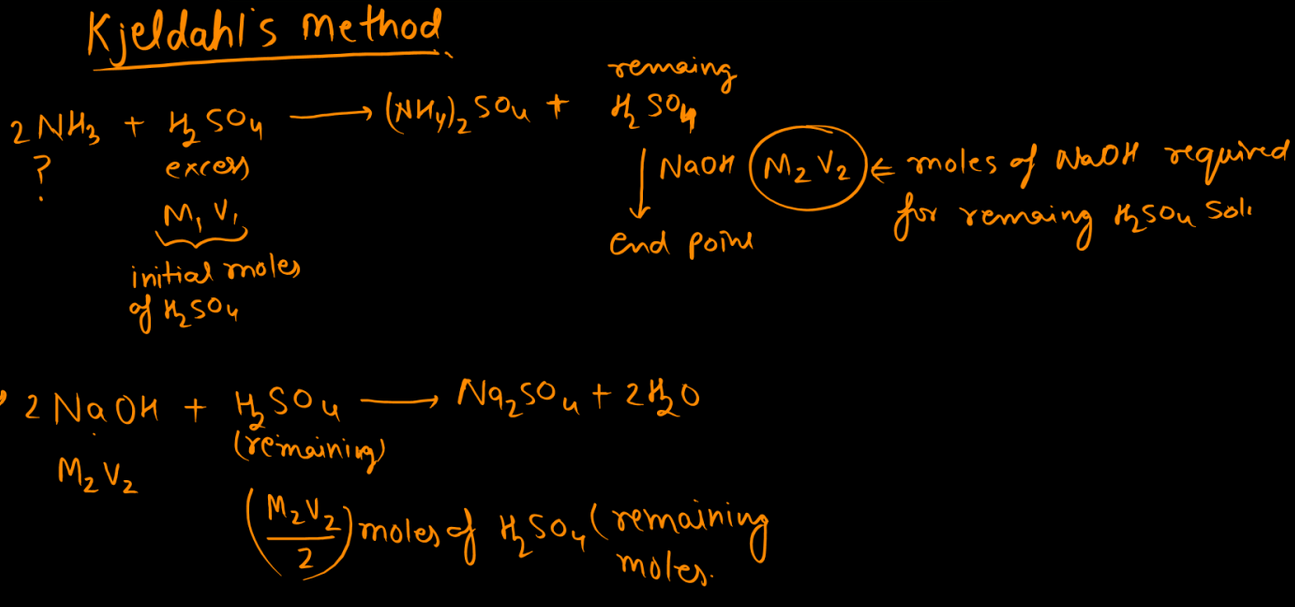 Kjeldahl's Method
2 NH3 + H2SO4 ⟶ (NH4)2 SO4 + remaing H2SO4
? excess
M1 V1
initial moles
of H2SO4
NaOH (M2 V2) ⇐ moles of NaOH required
for remaing H2SO4 Sol.
end point
2 NaOH + H2SO4 ⟶ Na2SO4 + 2H2O
(remaining)
M2 V2
(M2V2/2) moles of H2SO4 (remaining
moles.